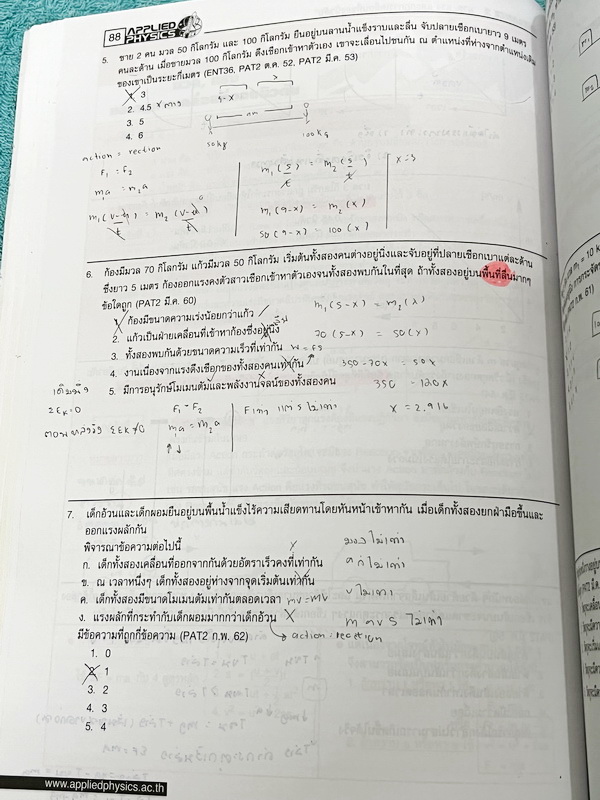 88 APPLIED PHYSICS
5. ชาย 2 คน มวล 50 กิโลกรัม และ 100 กิโลกรัม ยืนอยู่บนลานน้ำแข็งราบและลื่น จับปลายเชือกเบายาว 9 เมตร
คนละด้าน เมื่อชายมวล 100 กิโลกรัม ดึงเชือกเข้าหาตัวเอง เขาจะเลื่อนไปชนกัน ณ ตำแหน่งที่ห่างจากตำแหน่งเดิม
ของเขาเป็นระยะกี่เมตร (ENT36, PAT2 ต.ค. 52, PAT2 มี.ค. 53)
1. 3
2. 4.5
3. 5
4. 6
9-x
x
50kg
100kg
action = rection
F₁ = F₂
m₁a = m₂a
m₁(s/t) = m₂(s/t)
x = 3
m₁(9-x) = m₂(x)
50(9-x) = 100(x)
6. ก้องมีมวล 70 กิโลกรัม แก้วมีมวล 50 กิโลกรัม เริ่มต้นทั้งสองคนต่างอยู่นิ่งและจับอยู่ที่ปลายเชือกเบาแต่ละด้าน
ซึ่งยาว 5 เมตร ก้องออกแรงคงตัวสาวเชือกเข้าหาตัวเองจนทั้งสองพบกันในที่สุด ถ้าทั้งสองอยู่บนพื้นที่ลื่นมากๆ
ข้อใดถูก (PAT2 มี.ค. 60)
1. ก้องมีขนาดความเร่งน้อยกว่าแก้ว
2. แก้วเป็นฝ่ายเคลื่อนที่เข้าหาก้องซึ่งอยู่นิ่ง
3. ทั้งสองพบกันด้วยขนาดความเร็วที่เท่ากัน
W = FS
4. งานเนื่องจากแรงดึงเชือกของทั้งสองคนเท่ากัน
5. มีการอนุรักษ์โมเมนตัมและพลังงานจลน์ของทั้งสองคน
m₁(5-x) = m₂(x)
70(5-x) = 50(x)
350-70x = 50x
350 = 120x
x = 2.916
ΣEk=0
ΣEk≠0
F₁ = F₂
m₁a = m₂a
F เท่า แต่ s ไม่เท่า
7. เด็กอ้วนและเด็กผอมยืนอยู่บนพื้นน้ำแข็งไร้ความเสียดทานโดยหันหน้าเข้าหากัน เมื่อเด็กทั้งสองยกฝ่ามือขึ้นและ
ออกแรงผลักกัน
พิจารณาข้อความต่อไปนี้
ก. เด็กทั้งสองเคลื่อนที่ออกจากกันด้วยอัตราเร็วคงที่เท่ากัน
ข. ณ เวลาหนึ่งๆ เด็กทั้งสองอยู่ห่างจากจุดเริ่มต้นเท่ากัน
ค. เด็กทั้งสองมีขนาดโมเมนตัมเท่ากันตลอดเวลา mv = mv
ง. แรงผลักที่กระทำกับเด็กผอมมากกว่าเด็กอ้วน
มีข้อความที่ถูกกี่ข้อความ (PAT2 ก.พ. 62)
action = rection
มวล ไม่เท่า
a ก็ ไม่เท่า
v ไม่เท่า
m a v s ไม่เท่า
1. 0
2. 1
3. 2
4. 3
5. 4
www.appliedphysics.ac.th